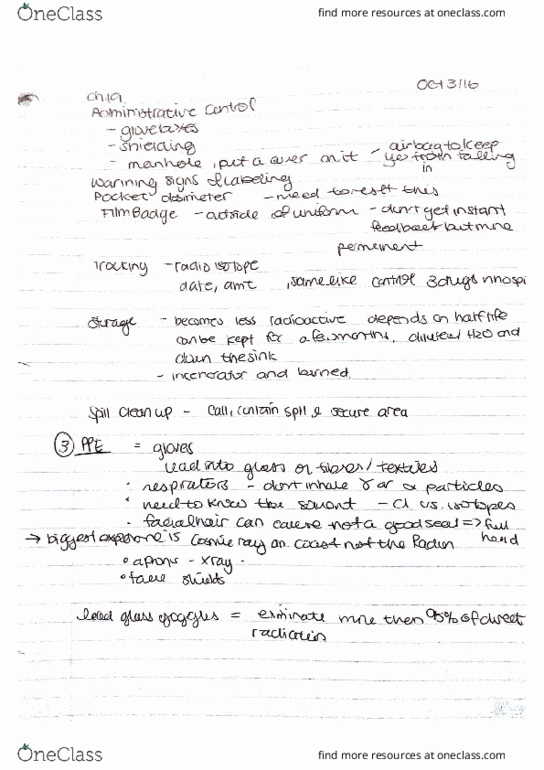 OneClass
find more resources at oneclass.com
Oct 3/16
Ch19
Administrative Control
- glove boxes
- shielding
- manhole, put a cover on it - airbag to keep
ye from falling
in
Warning signs & labeling
Pocket dosimeter - need to reset this
Film Badge - outside of uniform - don't get instant
feedback but more
permenent
Tracking - radio isotope
date, amt , same like control drugs
Storage - becomes less radioactive depends on half life
can be kept for a few months, diluted H2O and
down the sink
- incenerator and burned.
Spill clean up - Call, contain spill & secure area
③ PPE = gloves
Lead into glass or fibres/textiles
• respirators - don't inhale γ or α particles
• need to know the solvent - Cl vs. isotopes
• facial hair can cause not a good seal => full
hood
→ biggest exposure is Cosmic ray on coast not the Radon
• aprons - xray.
• face shields
lead glass goggles = eliminate more then 95% of direct
radiation
OneClass
find more resources at oneclass.com